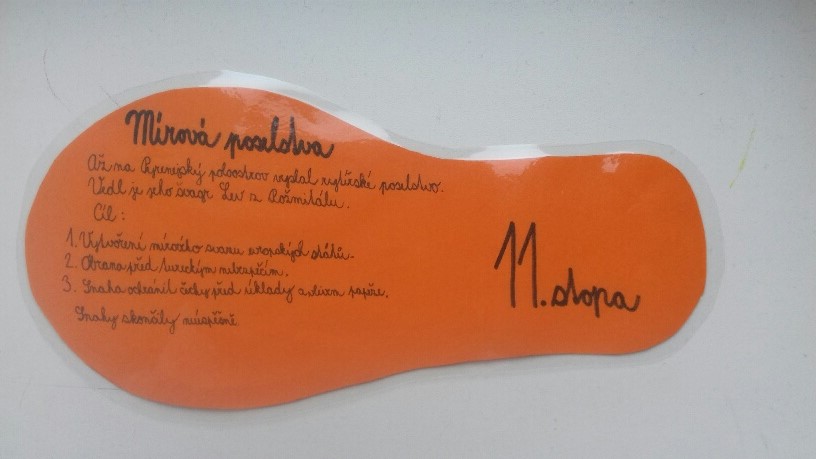 Mírová poselstva
Až na Pyrenejský poloostrov vyslal rytířské poselstvo.
Vedl je jeho švagr Lev z Rožmitálu.
Cíl:
1. Vytvoření mírového svazu evropských států.
2. Obrana před tureckým nebezpečím.
3. Snaha ochránit Čechy před úklady z dvora papeže.
Snahy skončily neúspěšně.
11. stopa